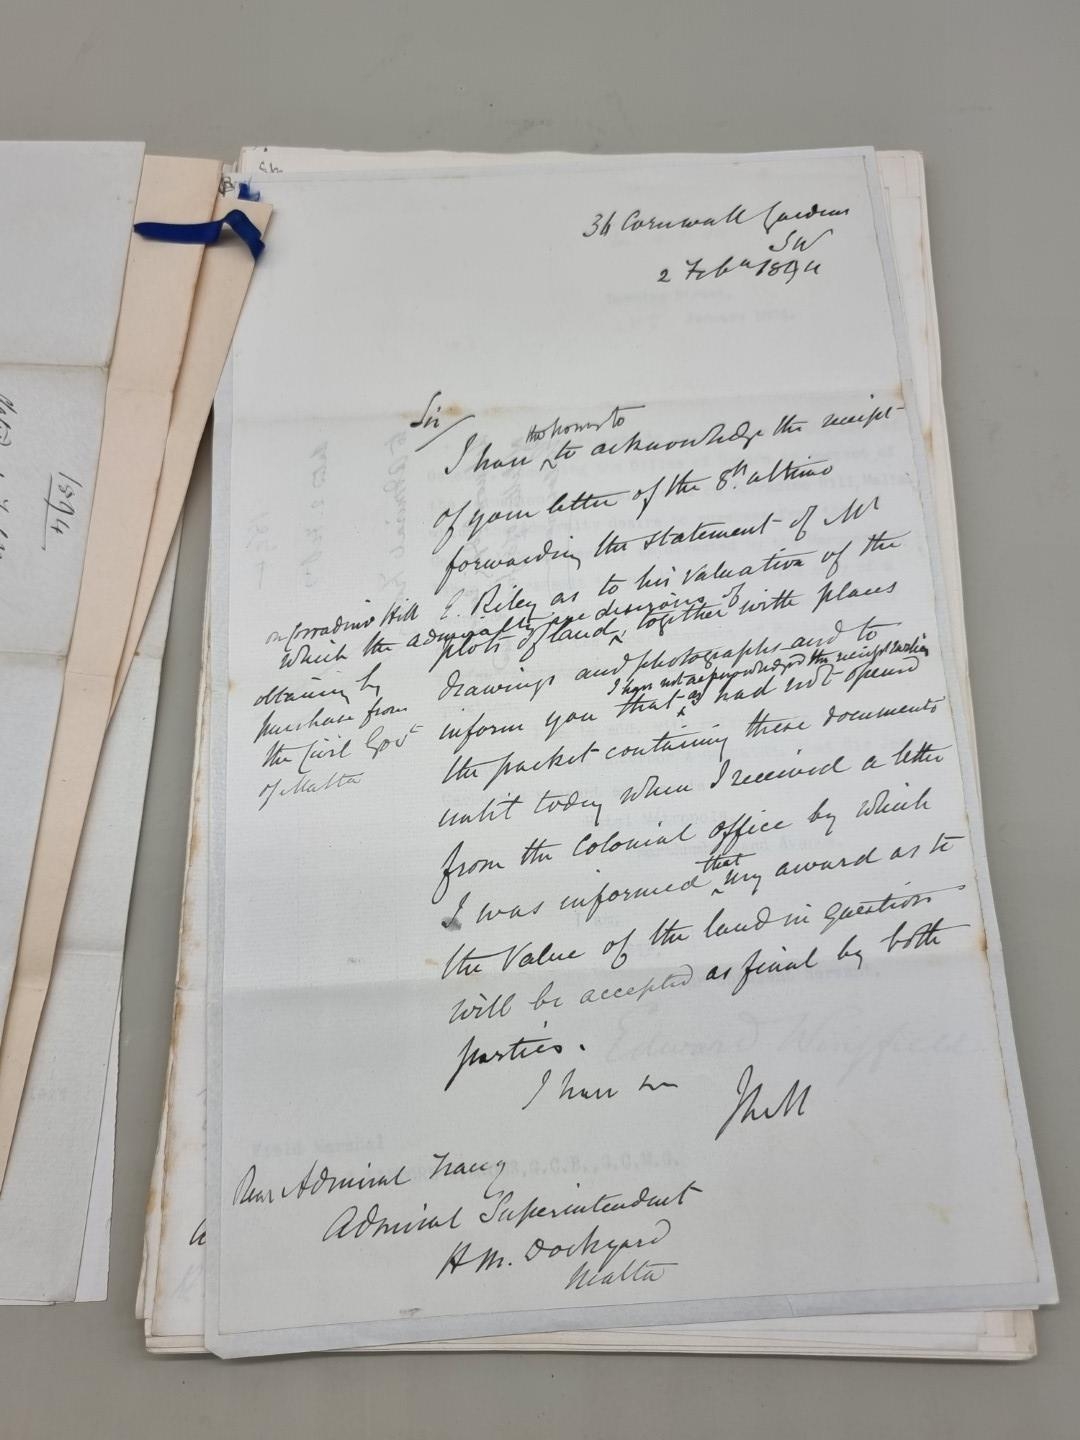 36 Cornwall Gardens
SW
2 Feb 1894
Sir/
the honor to
I have ^ to acknowledge the receipt
of your letter of the 8th ultimo
forwarding the statement of Mr
E. Riley as to his valuation of the
plots of land ^ together with plans
on Corradino Hill
which the admiralty are desirous of
obtaining by
purchase from
the Civil Govt
of Malta
drawings and photographs and to
I have not acknowledged the receipt earlier
inform you that ^ as had not opened
the packet containing these documents
until today when I received a letter
from the Colonial office by which
that
I was informed ^ my award as to
the value of the land in question
will be accepted as final by both
parties.
I have
Rear Admiral Tracey
Admiral Superintendent
H M. Dockyard
Malta
1894
Field Marshal
G.C.B., G.C.M.G.
Edward